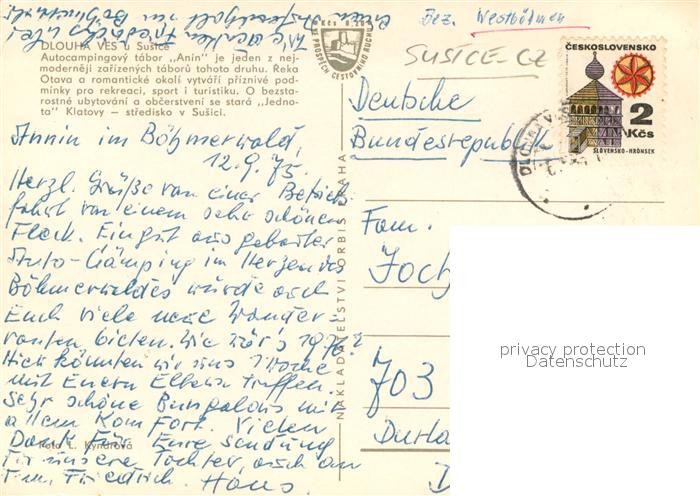 DLOUHÁ VES u Sušice
Autocampingový tábor „Anín" je jeden z nej-
moderněji zařízených táborů tohoto druhu. Řeka
Otava a romantické okolí vytváří příznivé pod-
mínky pro rekreaci, sport i turistiku. O bezsta-
rostné ubytování a občerstvení se stará „Jedno-
ta" Klatovy — středisko v Sušici.
Annin im Böhmerwald,
12.9.75.
Herzl. Grüße von einer
fahrt von einem sehr schönen
Fleck. Ein gut aus gebauter
Auto-Cämping im Herzen des
Böhmerwaldes würde auch
Euch viele neue Wander-
routen bieten. Wie wär's 1976?
Hier könnten wir uns 1 Woche
mit Euern Eltern treffen.
Sehr schöne Bungalows mit
allem Komfort. Vielen
Dank für Eure Sendung
für unsere Tochter, auch an
Fam. Friedrich. Hans
Foto L. Kyndrová
NAKLADATELSTVÍ ORBIS PRAHA
Kčs 0,20
VE PROSPĚCH CESTOVNÍHO RUCHU
Bez. Westböhmen
SUŠICE-CZ
ČESKOSLOVENSKO
2
Kčs
SLOVENSKO-HRONSEK
DLOUHÁ VES
Deutsche
Bundesrepublik
Fam.
Joch
703
Durla
privacy protection
Datenschutz